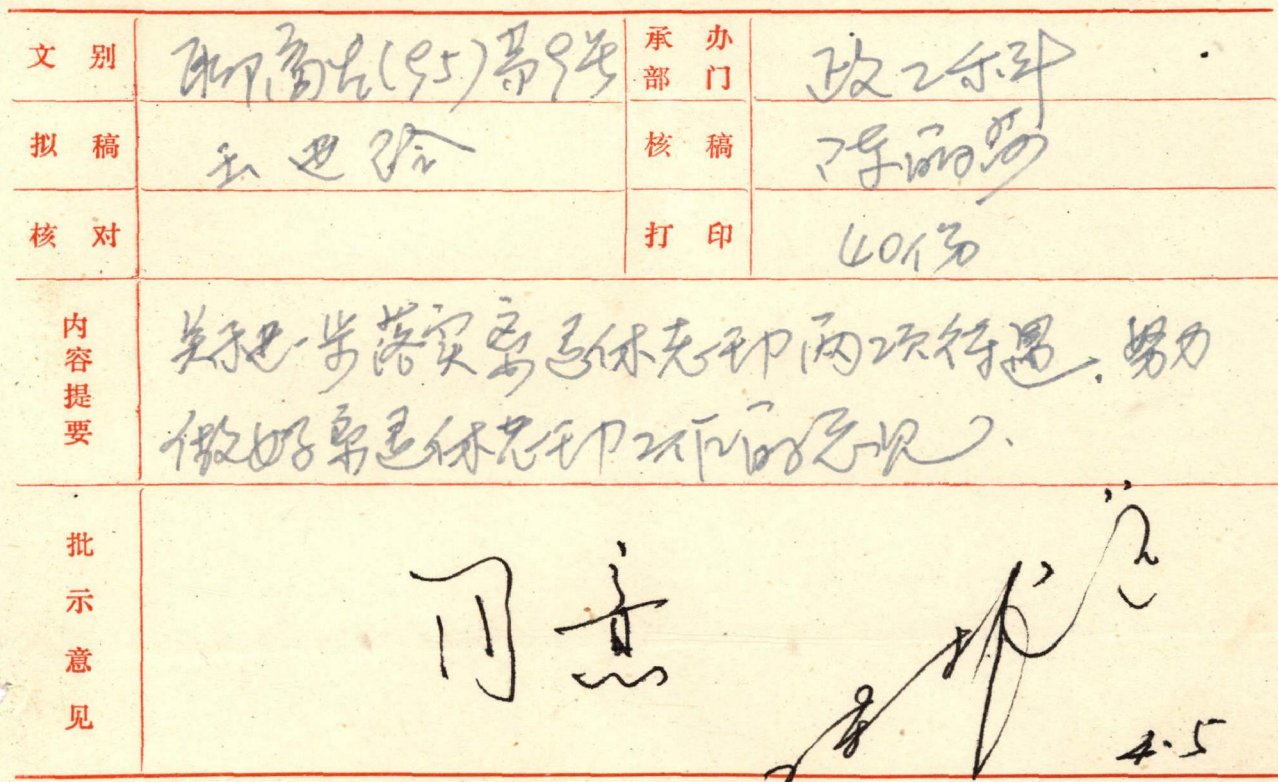 文别 聊商 (95)第9号 承办部门 政工科
拟稿 核稿 陈丽莎
核对 打印 40份
内容提要 关于进一步落实离退休老干部两项待遇、努力
做好离退休老干部工作的意见
批示意见 同意
4.5